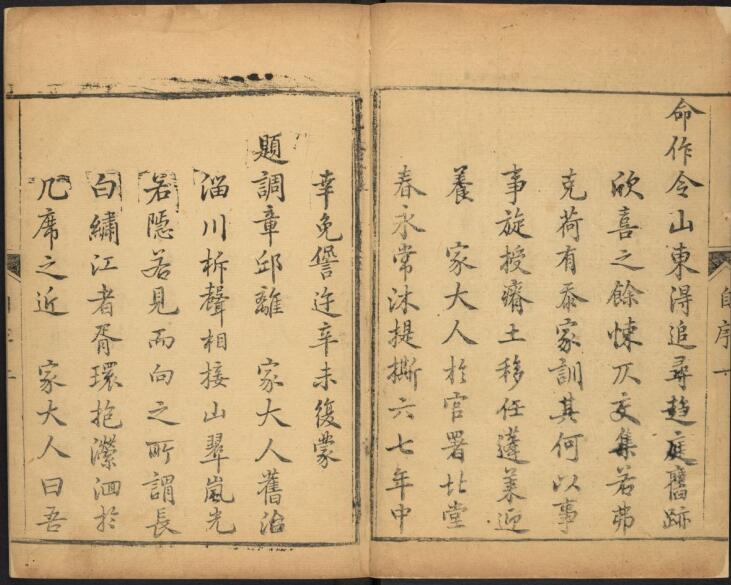 自序
命作令山東得追尋趋庭舊跡
欣喜之餘悚仄交集若弗
克荷有忝家訓其何以事
事旋授癠土移任蓬萊迎
養　家大人於官署北堂
春永常沐提撕六七年中
幸免愆迕辛未復蒙
題調章邱離　家大人舊治
淄川柝聲相接山翠嵐光
若隱若見而向之所謂長
白繡江者胥環抱瀠洄於
几席之近　家大人曰吾